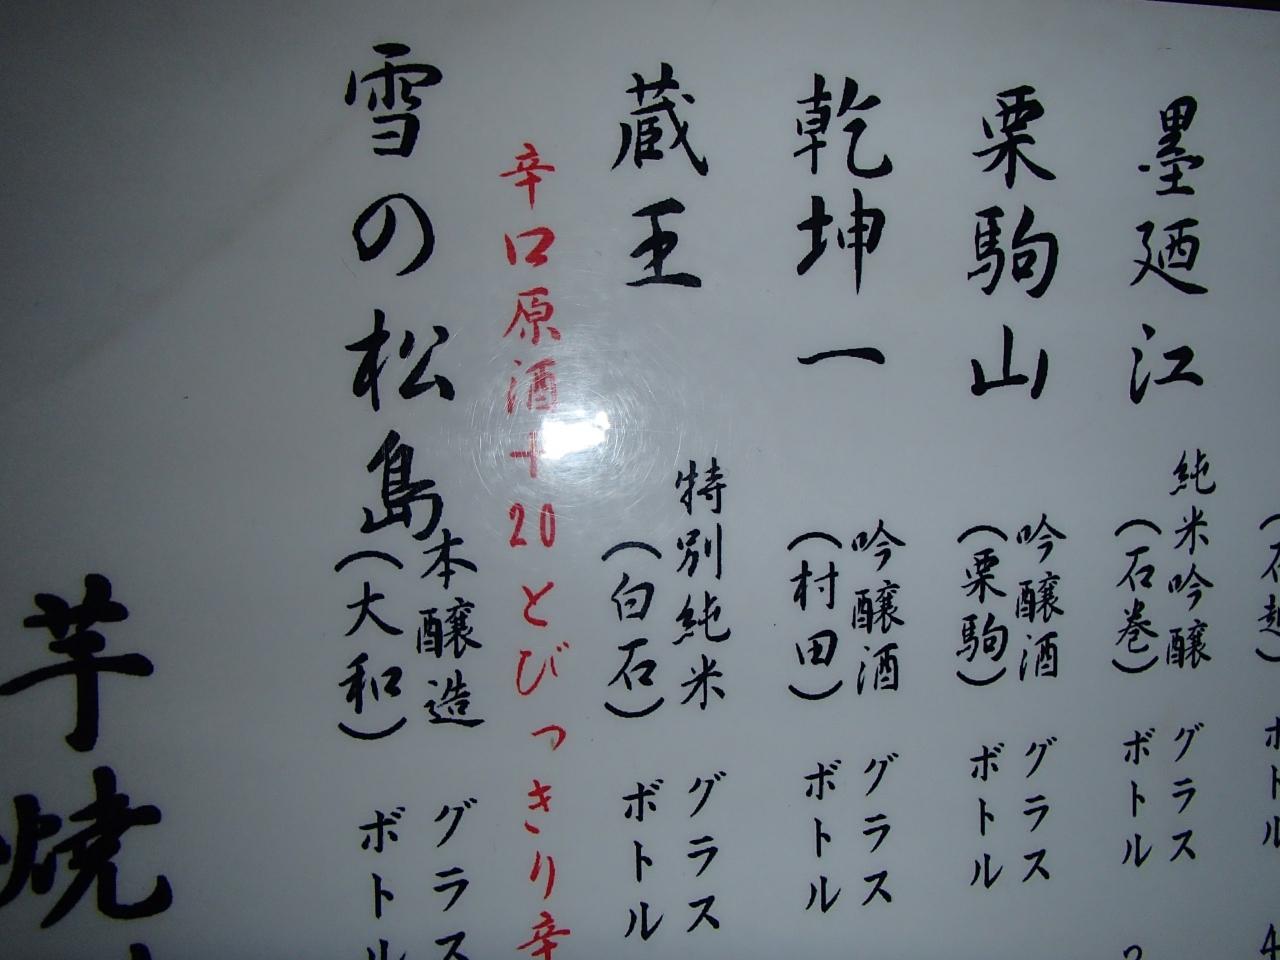 (石越)
ボトル
4
墨廼江
純米吟醸 グラス
(石巻) ボトル
2
栗駒山
吟醸酒 グラス
(栗駒) ボトル
乾坤一
吟醸酒 グラス
(村田) ボトル
蔵王
特別純米 グラス
(白石) ボトル
辛口原酒十20とびっきり辛
雪の松島
本醸造 グラス
(大和) ボトル
芋焼